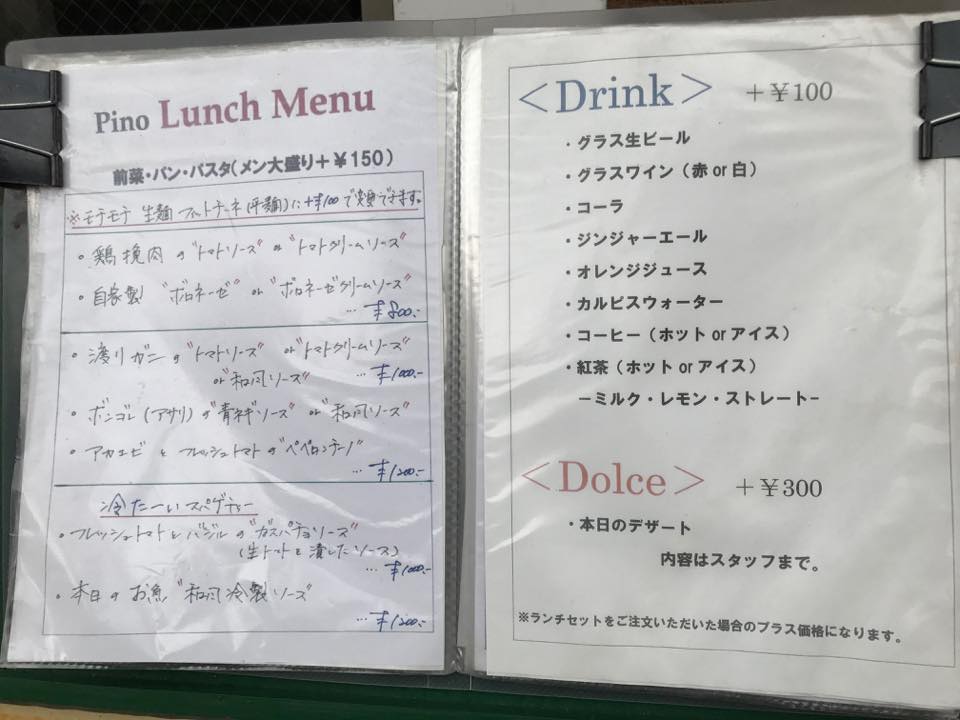 Pino Lunch Menu
前菜・パン・パスタ(メン大盛り+¥150)
※モチモチ 生麺 フェットチーネ(平麺)に+¥100で変更できます。
・鶏挽肉の"トマトソース" or "トマトクリームソース"
・自家製 "ボロネーゼ" or "ボロネーゼクリームソース"
… ¥800.-
・渡りガニの"トマトソース" or "トマトクリームソース"
or "和風ソース" … ¥1000.-
・ボンゴレ(アサリ)の"青ネギソース" or "和風ソース"
・アカエビとフレッシュトマトの"ペペロンチーノ"
… ¥1200.-
冷たーいスパゲティー
・フレッシュトマトとバジルの"ガスパチョソース"
(生トマトを潰したソース)
… ¥1000.-
・本日のお魚"和風冷製ソース"
… ¥1200.-
<Drink> +¥100
・グラス生ビール
・グラスワイン(赤or白)
・コーラ
・ジンジャーエール
・オレンジジュース
・カルピスウォーター
・コーヒー(ホットorアイス)
・紅茶(ホットorアイス)
－ミルク・レモン・ストレート－
<Dolce> +¥300
・本日のデザート
内容はスタッフまで。
※ランチセットをご注文いただいた場合のプラス価格になります。